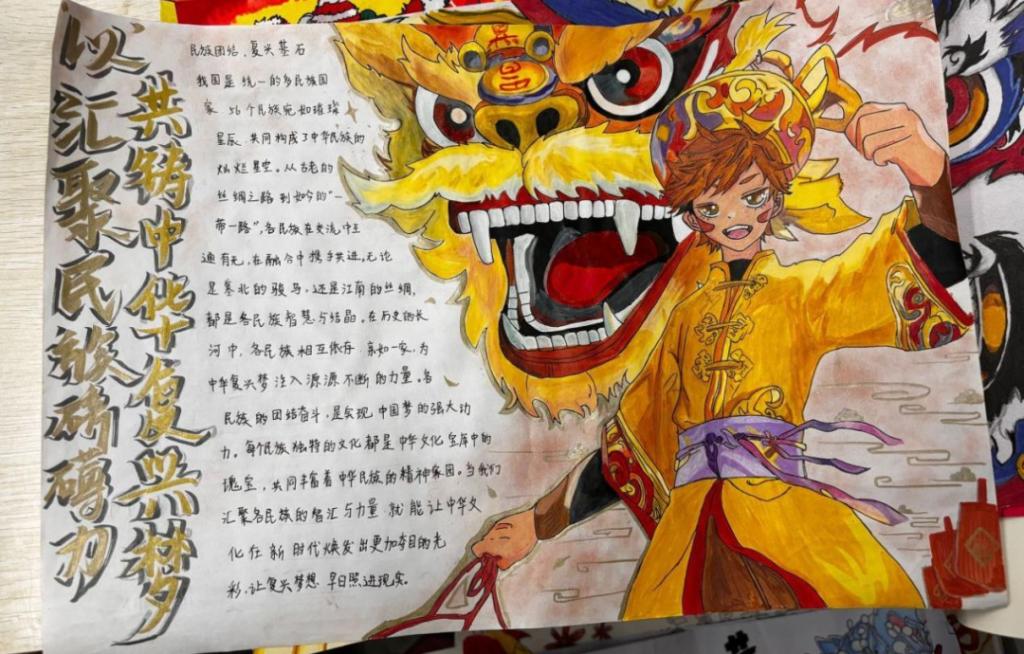 以汇聚民族磅礴力
共铸中华复兴梦
民族团结、复兴基石
我国是统一的多民族国
家 56个民族宛如璀璨
星辰、共同构成了中华民族的
灿烂星空。从古老的
丝绸之路到如今的“一
带一路”,各民族在交流中互
通有无,在融合中携手共进,无论
是塞北的骏马,还是江南的丝绸,
都是各民族智慧与结晶。在历史的长
河中,各民族相互依存 亲如一家,为
中华复兴梦注入源源不断的力量。各
民族的团结奋斗,是实现中国梦的强大动
力。每个民族独特的文化都是中华文化宝库中的
瑰宝,共同丰富着中华民族的精神家园。当我们
汇聚各民族的智汇与力量 就能让中华文
化在新时代焕发出更加夺目的光
彩,让复兴梦想 早日照进现实。